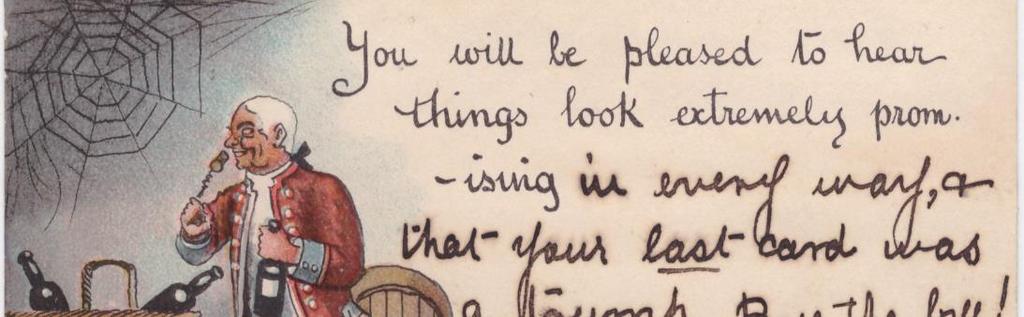 You will be pleased to hear
things look extremely prom.
-ising in every way, &
that your last card was
a